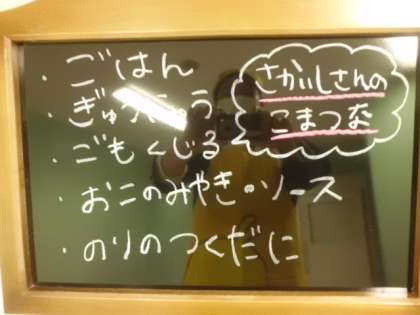 ・ごはん
・ぎゅうにゅう
・ごもくじる
・おこのみやき・ソース
・のりのつくだに
さかいしさんの
こまつな